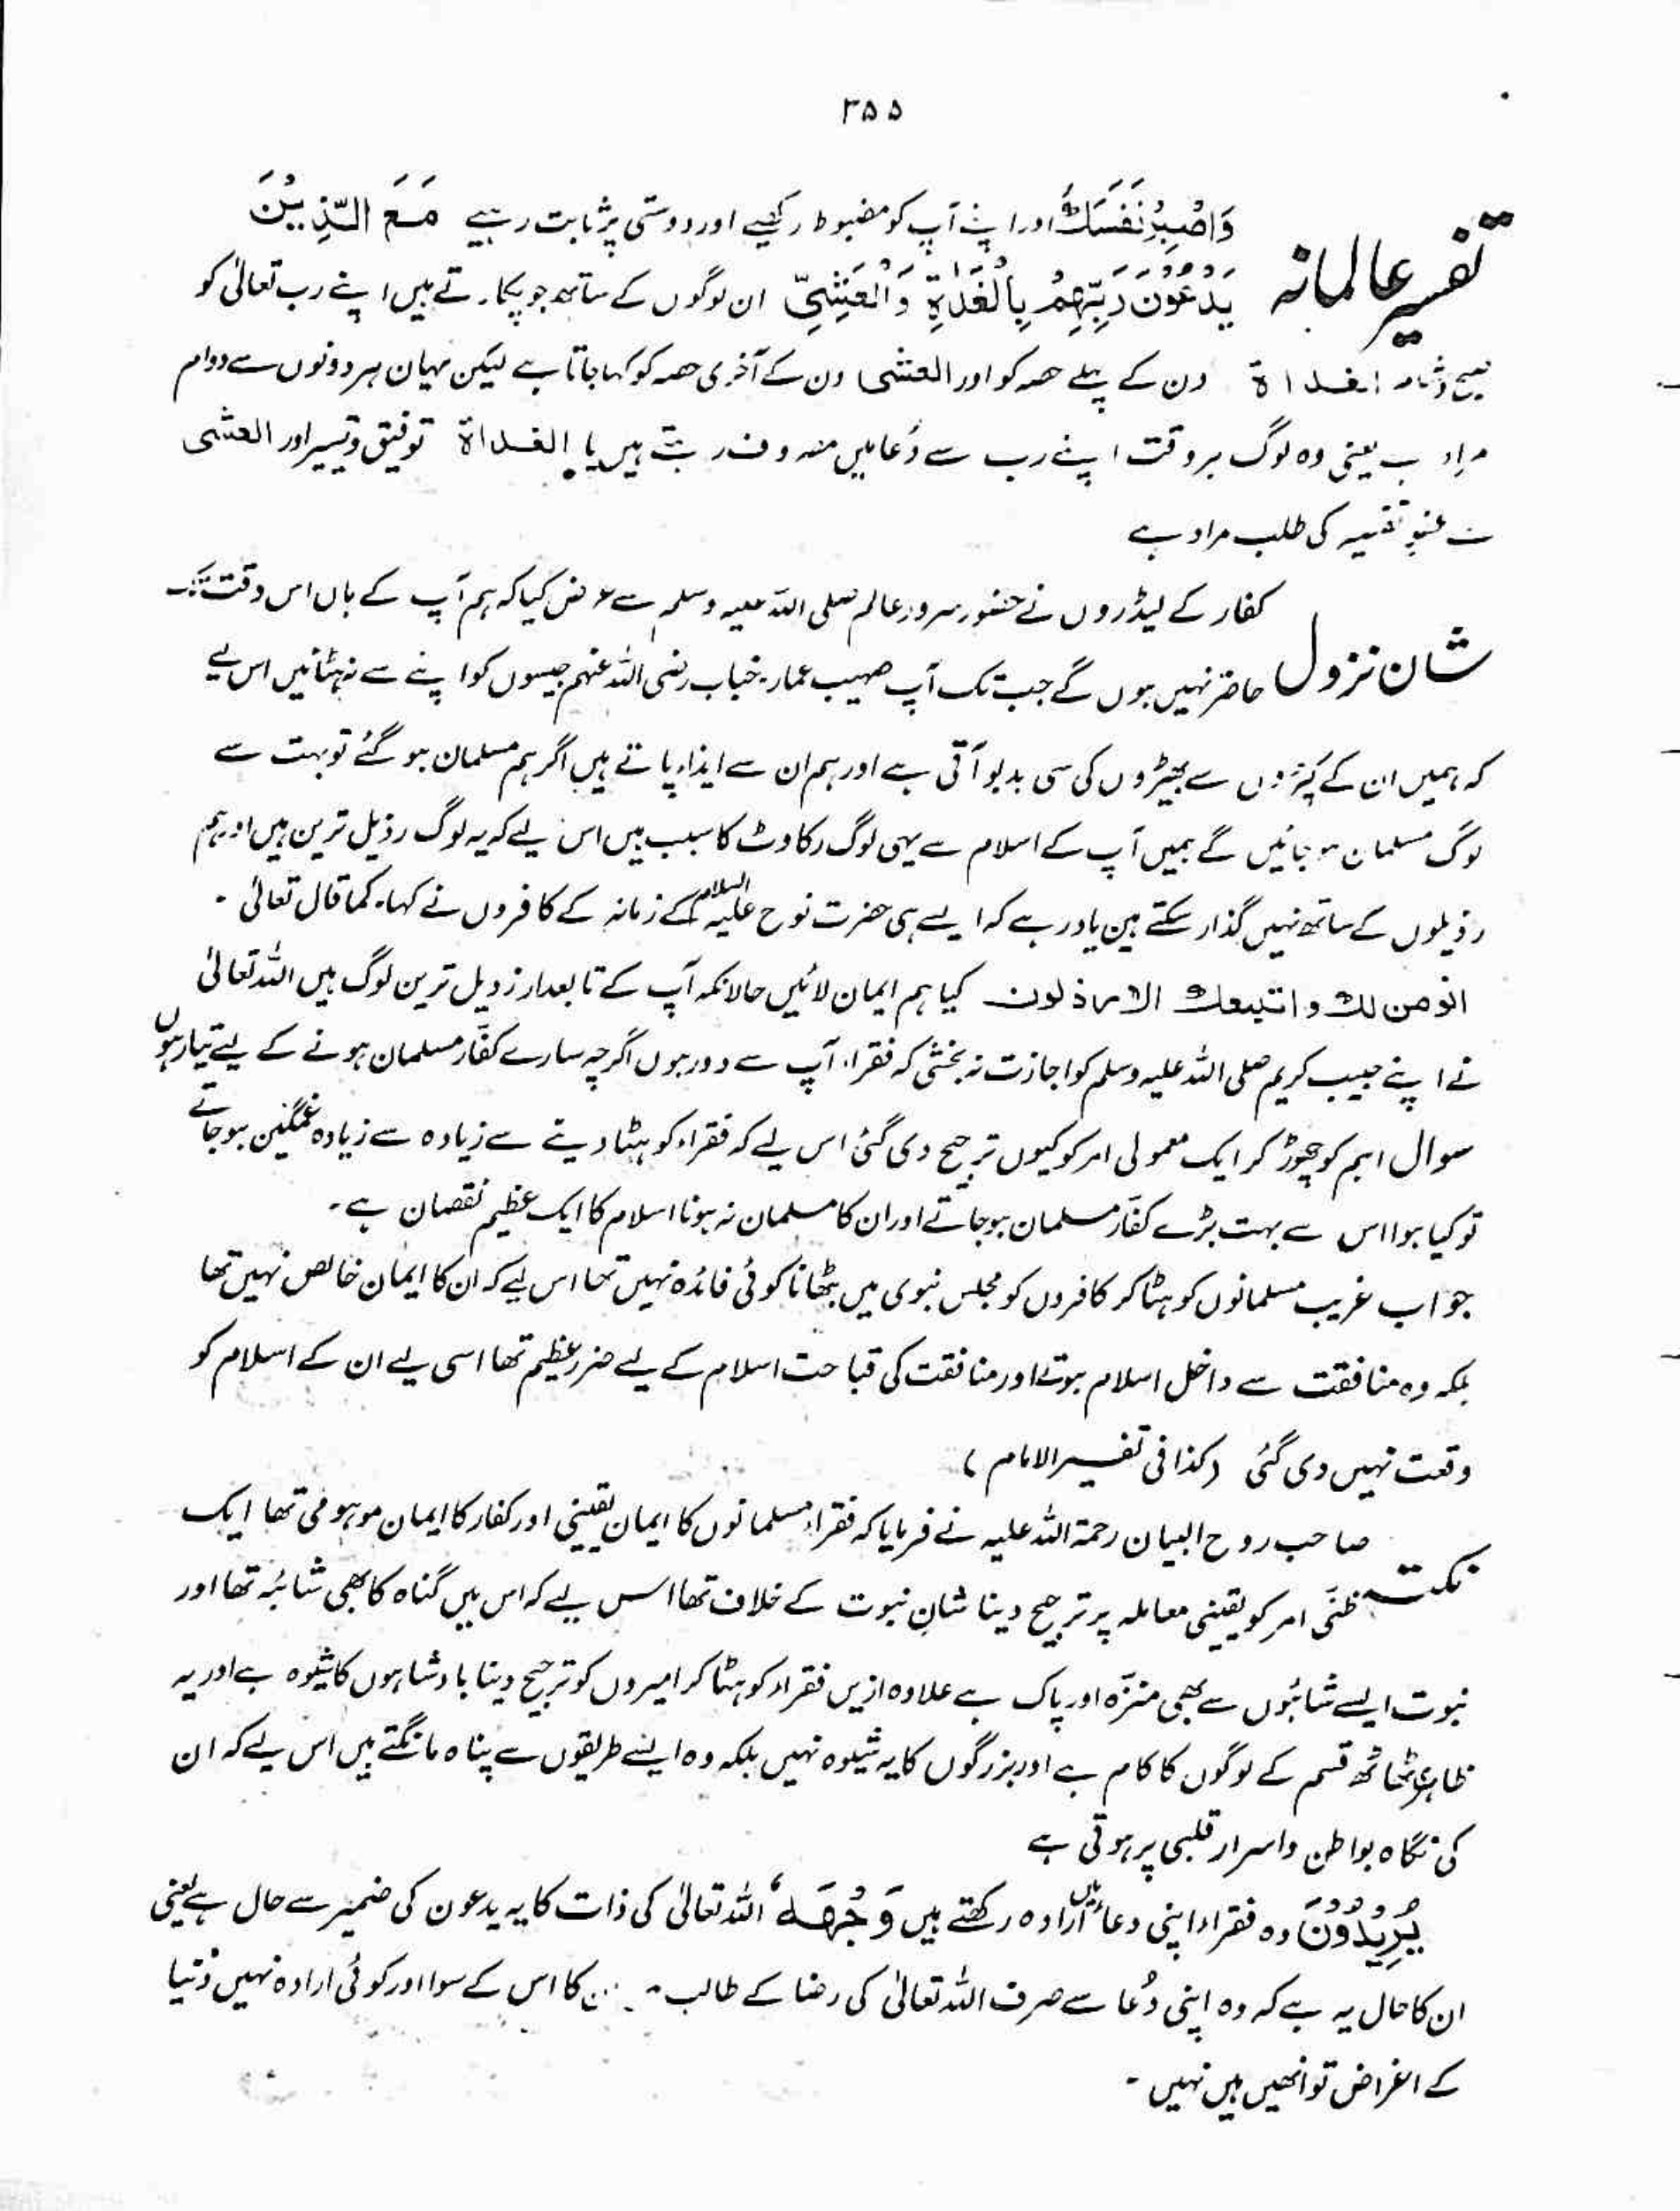 ۳۵۵
تفسیر عالمانہ
وَاصْبِرْ نَفْسَكَ اور اپنے آپ کو مضبوط رکھیے اور دوستی پر ثابت رہیے مَعَ الَّذِيْنَ
يَدْعُوْنَ رَبَّهُمْ بِالْغَدٰوةِ وَالْعَشِيِّ ان لوگوں کے ساتھ جو پکارتے ہیں اپنے رب تعالیٰ کو
صبح و شام الغداۃ دن کے پہلے حصہ کو اور العشی دن کے آخری حصہ کو کہا جاتا ہے لیکن یہاں ہر دونوں سے دوام
مراد ہے یعنی وہ لوگ ہر وقت اپنے رب سے دُعا میں مصروف رہتے ہیں یا الغداۃ توفیق و تیسیر اور العشی
سے عفو تقصیر کی طلب مراد ہے
شان نزول
کفار کے لیڈروں نے حضور سرور عالم صلی اللہ علیہ وسلم سے عرض کیا کہ ہم آپ کے ہاں اس وقت تک
حاضر نہیں ہوں گے جب تک آپ صہیب عمار۔ خباب رضی اللہ عنہم جیسوں کو اپنے سے نہ ہٹائیں اس لیے
کہ ہمیں ان کے کپڑوں سے بھیڑوں کی سی بدبو آتی ہے اور ہم ان سے ایذاء پاتے ہیں اگر ہم مسلمان ہو گئے تو بہت سے
لوگ مسلمان ہو جائیں گے ہمیں آپ کے اسلام سے یہی لوگ رکاوٹ کا سبب ہیں اس لیے کہ یہ لوگ رذیل ترین ہیں اور ہم
رذیلوں کے ساتھ نہیں گذار سکتے ہین یاد رہے کہ ایسے ہی حضرت نوح علیہ السلام کے زمانہ کے کافروں نے کہا۔ کما قال تعالیٰ ۔
انؤمن لک واتبعک الارذلون کیا ہم ایمان لائیں حالانکہ آپ کے تابعدار زدیل ترین لوگ ہیں اللہ تعالیٰ
نے اپنے حبیب کریم صلی اللہ علیہ وسلم کو اجازت نہ بخشی کہ فقراء آپ سے دور ہوں اگرچہ سارے کفّار مسلمان ہونے کے لیے تیار ہوں
سوال اہم کو چھوڑ کر ایک معمولی امر کو کیوں ترجیح دی گئی اس لیے کہ فقراء کو ہٹا دیتے سے زیادہ سے زیادہ غمگین ہو جاتے
تو کیا ہوا اس سے بہت بڑے کفّار مسلمان ہو جاتے اور ان کا مسلمان نہ ہونا اسلام کا ایک عظیم نقصان ہے ۔
جواب غریب مسلمانوں کو ہٹا کر کافروں کو مجلس نبوی میں بٹھانا کوئی فائدہ نہیں تھا اس لیے کہ ان کا ایمان خالص نہیں تھا
بلکہ وہ منافقت سے داخل اسلام ہوتے اور منافقت کی قباحت اسلام کے لیے ضرر عظیم تھا اسی لیے ان کے اسلام کو
وقعت نہیں دی گئی (کذا فی تفسیر الامام)
نکتہ
صاحب روح البیان رحمۃ اللہ علیہ نے فرمایا کہ فقراء مسلمانوں کا ایمان یقینی اور کفار کا ایمان موہومی تھا ایک
ظنّی امر کو یقینی معاملہ پر ترجیح دینا شانِ نبوت کے خلاف تھا اسس لیے کہ اس میں گناہ کا بھی شائبہ تھا اور
نبوت ایسے شائبوں سے بھی منزّہ اور پاک ہے علاوہ ازیں فقراء کو ہٹا کر امیروں کو ترجیح دینا بادشاہوں کا شیوہ ہے اور یہ
ظاہری ٹھاٹھ قسم کے لوگوں کا کام ہے اور بزرگوں کا یہ شیوہ نہیں بلکہ وہ ایسے طریقوں سے پناہ مانگتے ہیں اس لیے کہ ان
کی نگاہ بواطن واسرار قلبی پر ہوتی ہے
يُرِيْدُوْنَ وہ فقراء اپنی دعا میں ارادہ رکھتے ہیں وَجْهَهٗ اللہ تعالیٰ کی ذات کا یہ یدعون کی ضمیر سے حال ہے یعنی
ان کا حال یہ ہے کہ وہ اپنی دُعا سے صرف اللہ تعالیٰ کی رضا کے طالب کا اس کے سوا اور کوئی ارادہ نہیں دُنیا
کے اغراض تو انھیں ہیں نہیں ۔